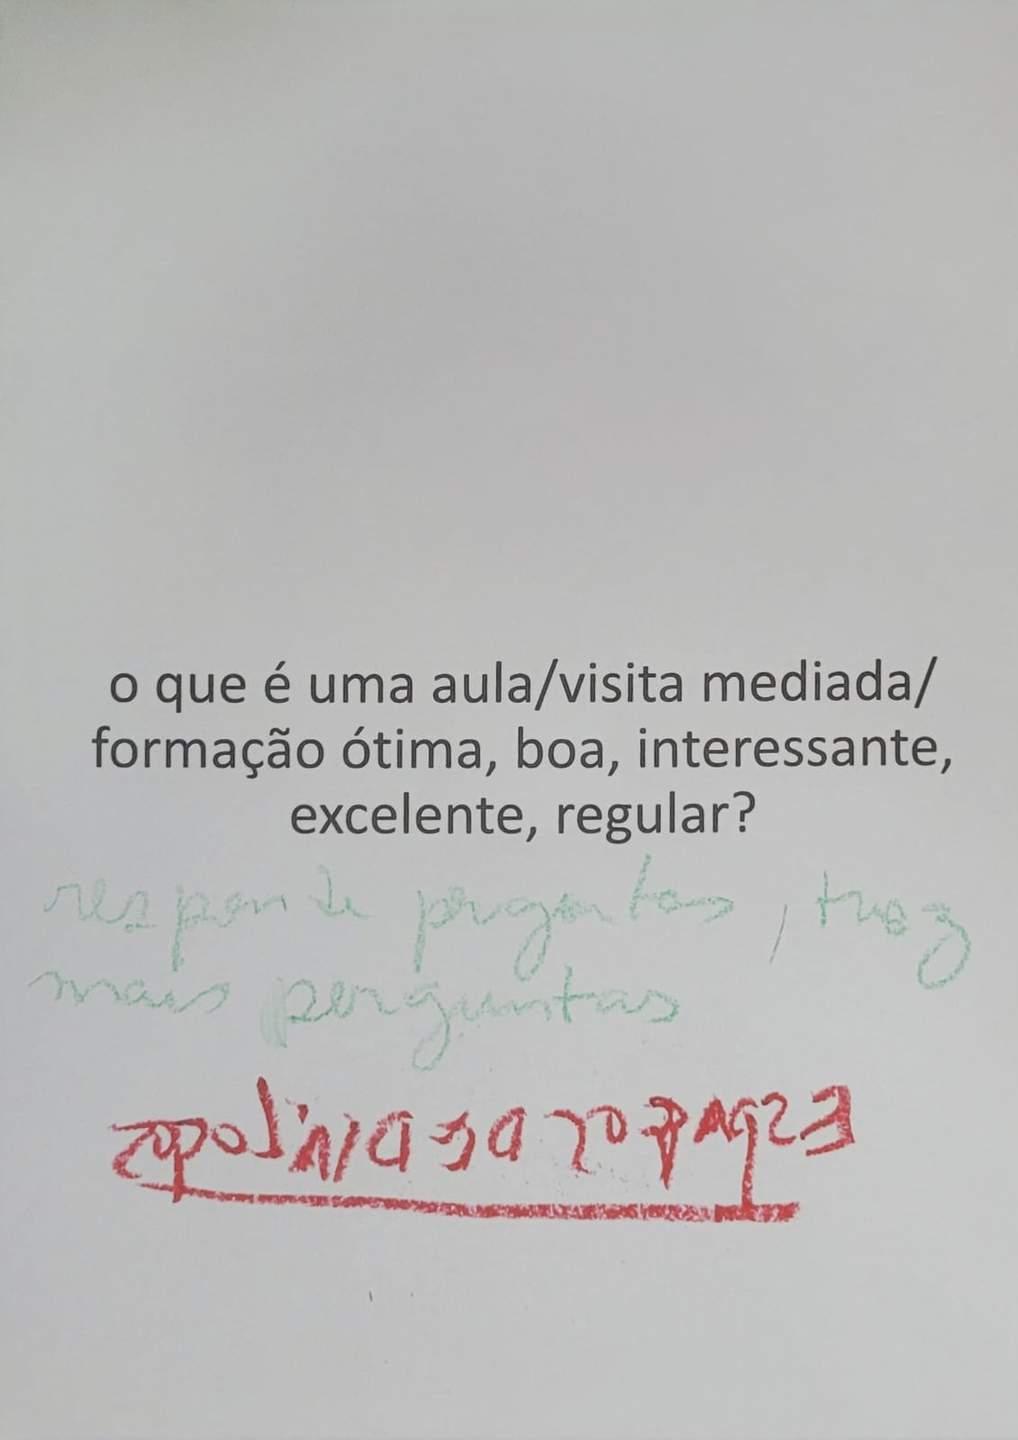 o que é uma aula/visita mediada/
formação ótima, boa, interessante,
excelente, regular?
responde perguntas, traz
mais perguntas